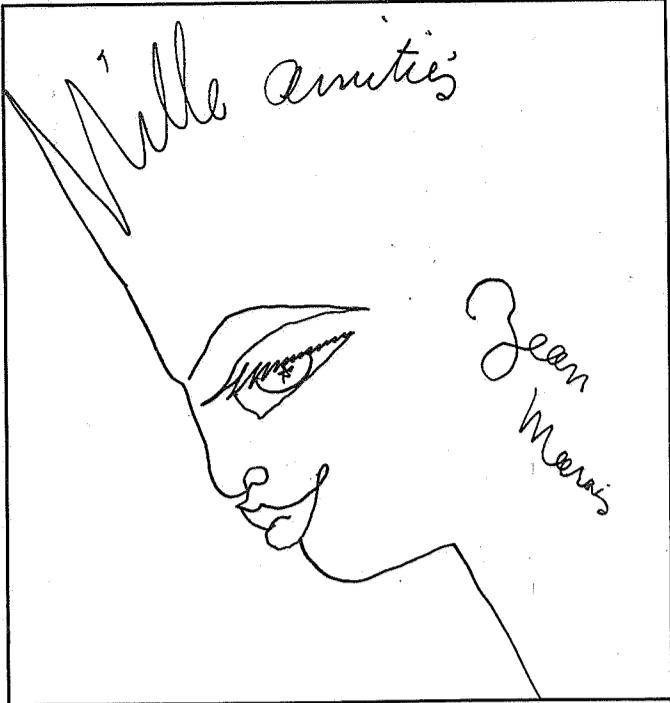 Mille amitiés
Jean
Marais